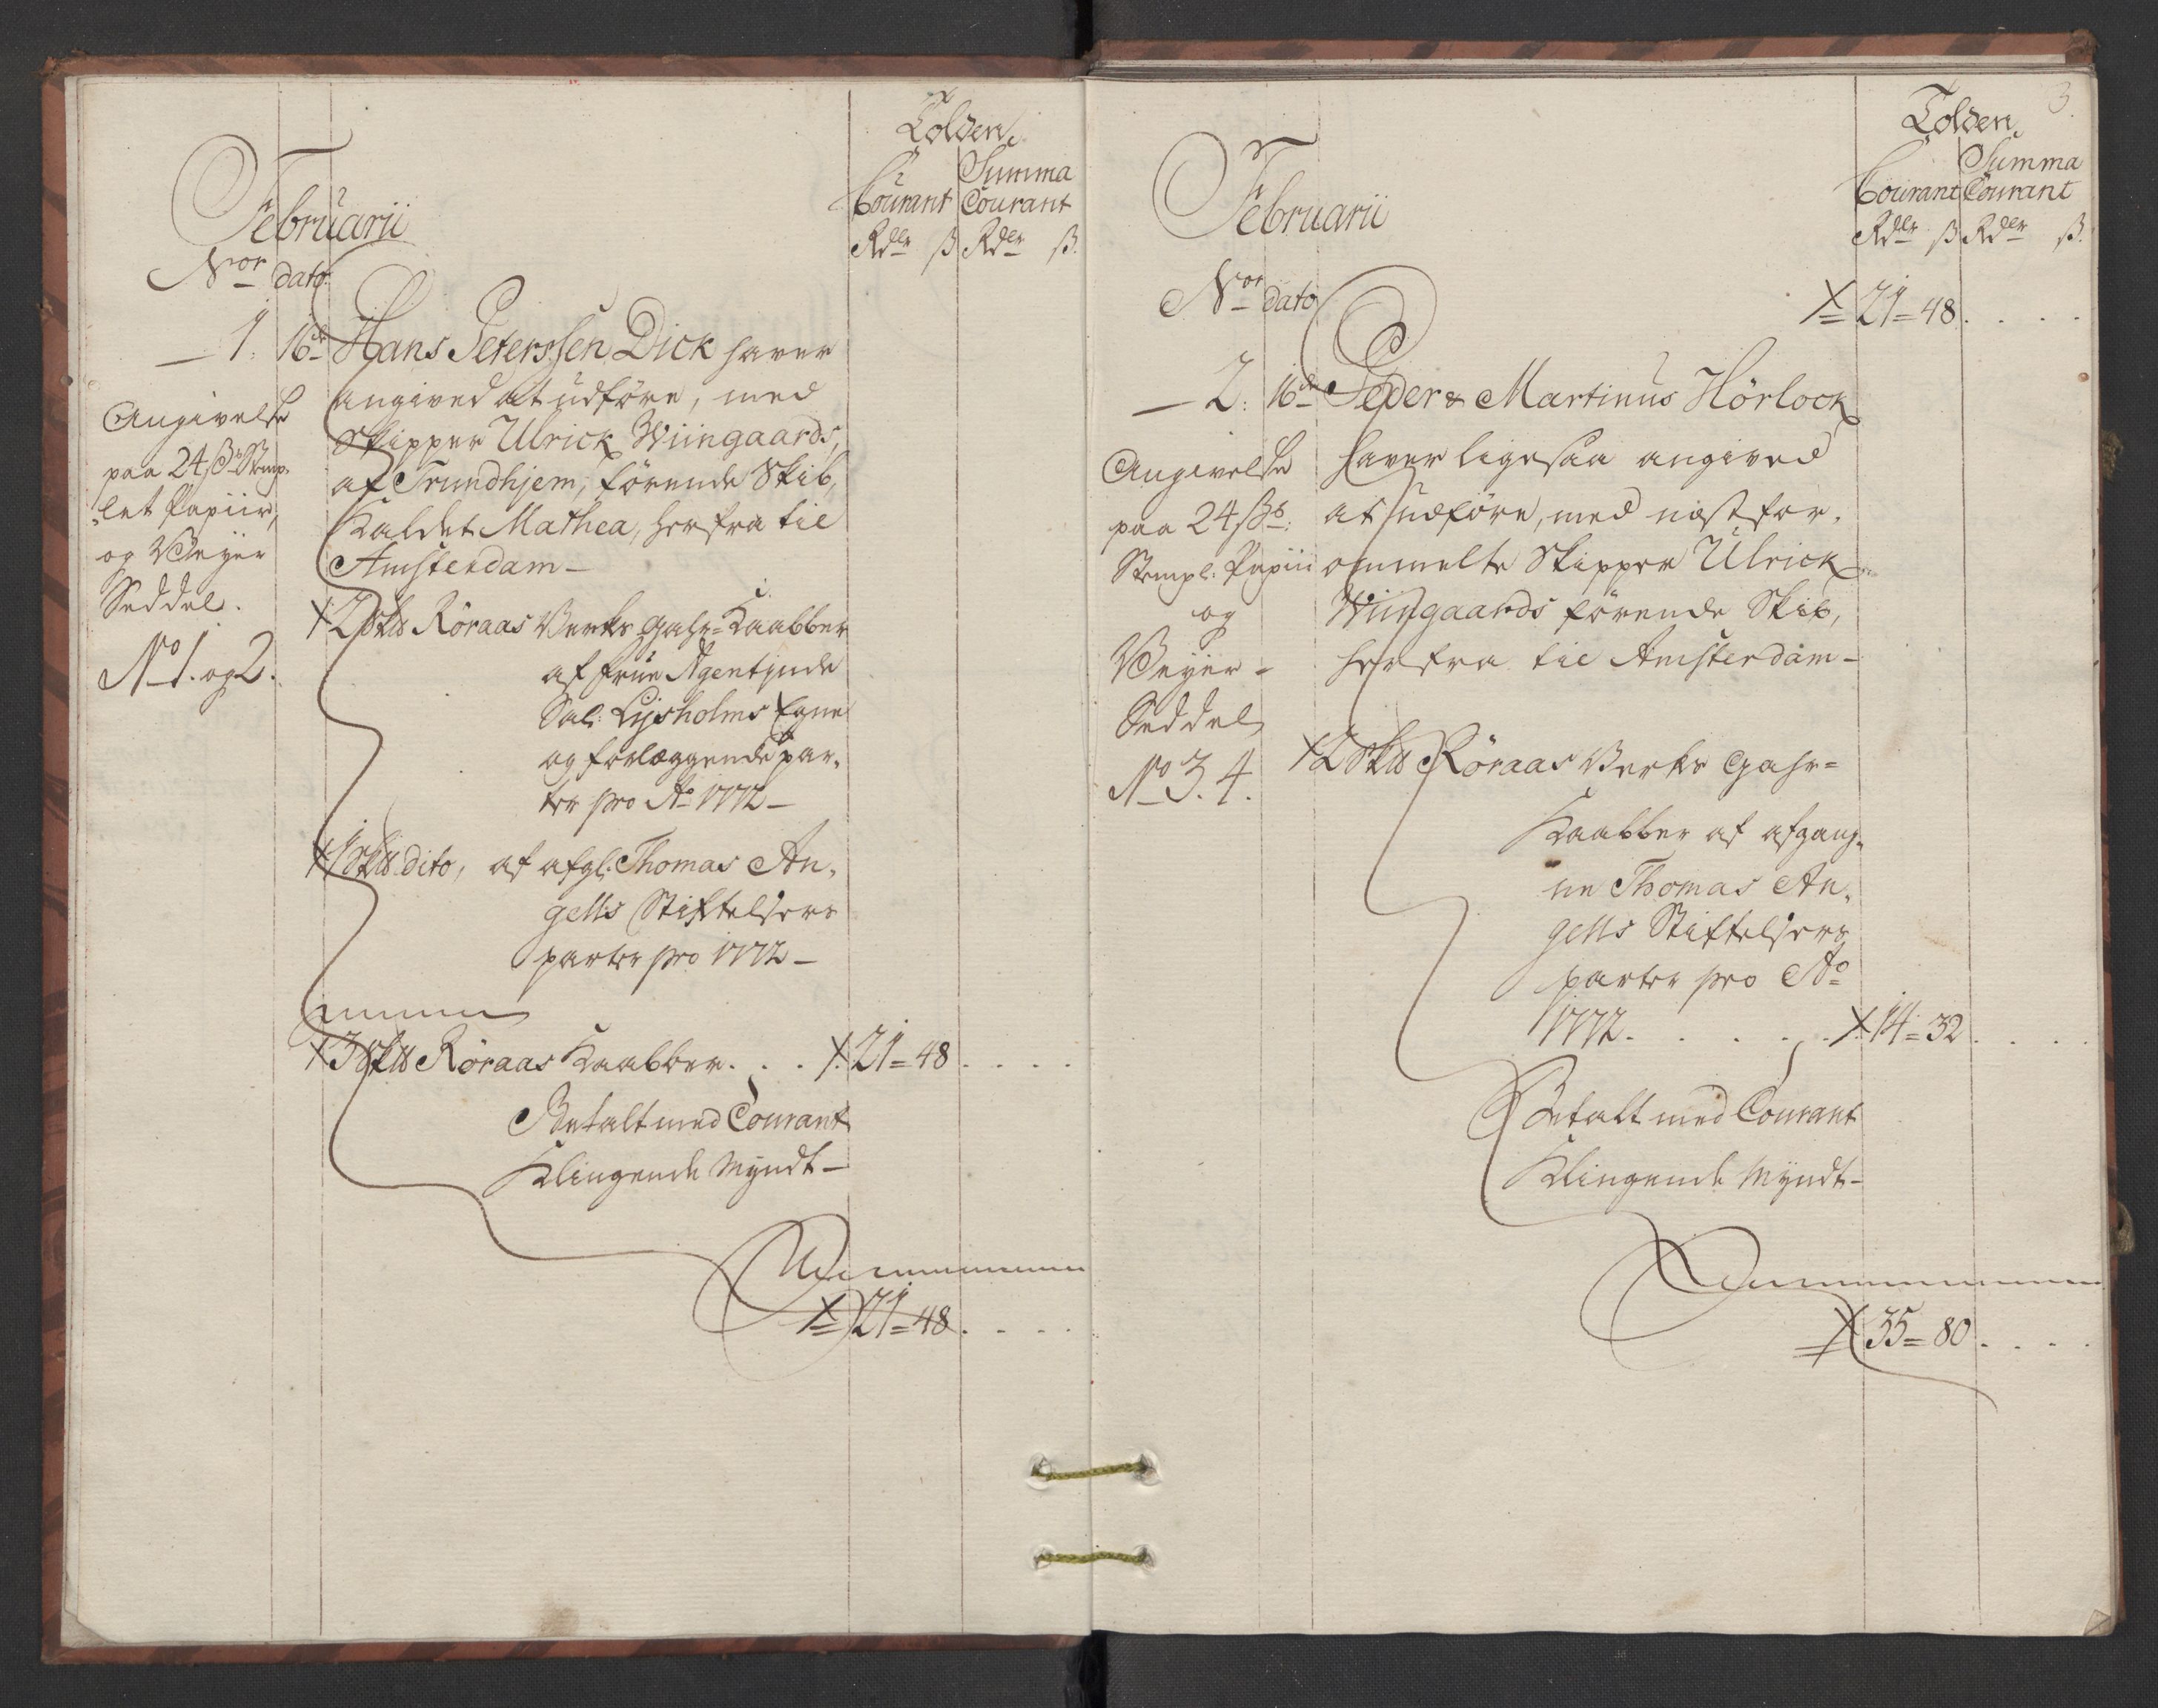 Tolden
Summa
Courant Courant
Rdlr ß Rdlr ß.
Februarii
Nor dato
1. 16de Hans Peterssen Dick haver
angived at udføre, med
Skipper Ulrick Wiingaards,
af Trundhjem, førende Skib,
Kaldet Mathea, herfra til
Amsterdam -
Angivelse
paa 24 ßs Stemp-
let Papiir,
og Veyer
Seddel.
No 1. og 2.
2 Sk℔ Röraas Verks Gahr-Kaabber
af Frue Agentinde
Sal: Lysholms Egne
og forlæggende par-
ter pro Ao 1772 -
1 Sk℔ dito, af afgl: Thomas An-
gells Stiftelsers
parter pro 1772 -
3 Sk℔ Röraas Kaabber . . . 21 = 48 . . . .
Betalt med Courant
Klingende Myndt -
21 = 48 . . . .
3.
Tolden
Summa
Courant Courant
Rdlr ß Rdlr ß.
Februarii
Nor dato
21 = 48 . . . .
2: 16de Peder & Martinus Hörlock
haver ligesaa angived
at udføre, med næst for-
ommelte Skipper Ulrick
Wiingaards førende Skib,
herfra til Amsterdam -
Angivelse
paa 24 ßs:
Stempl: Papiir
og
Veyer-
Seddel
No 3. 4.
2 Sk℔ Röraas Verks Gahr-
Kaabber af afgang-
ne Thomas An-
gells Stiftelsers
parter pro Ao
1772 . . . . . 14 = 32 . . . .
Betalt med Courant
Klingende Myndt -
35 = 80 . . . .